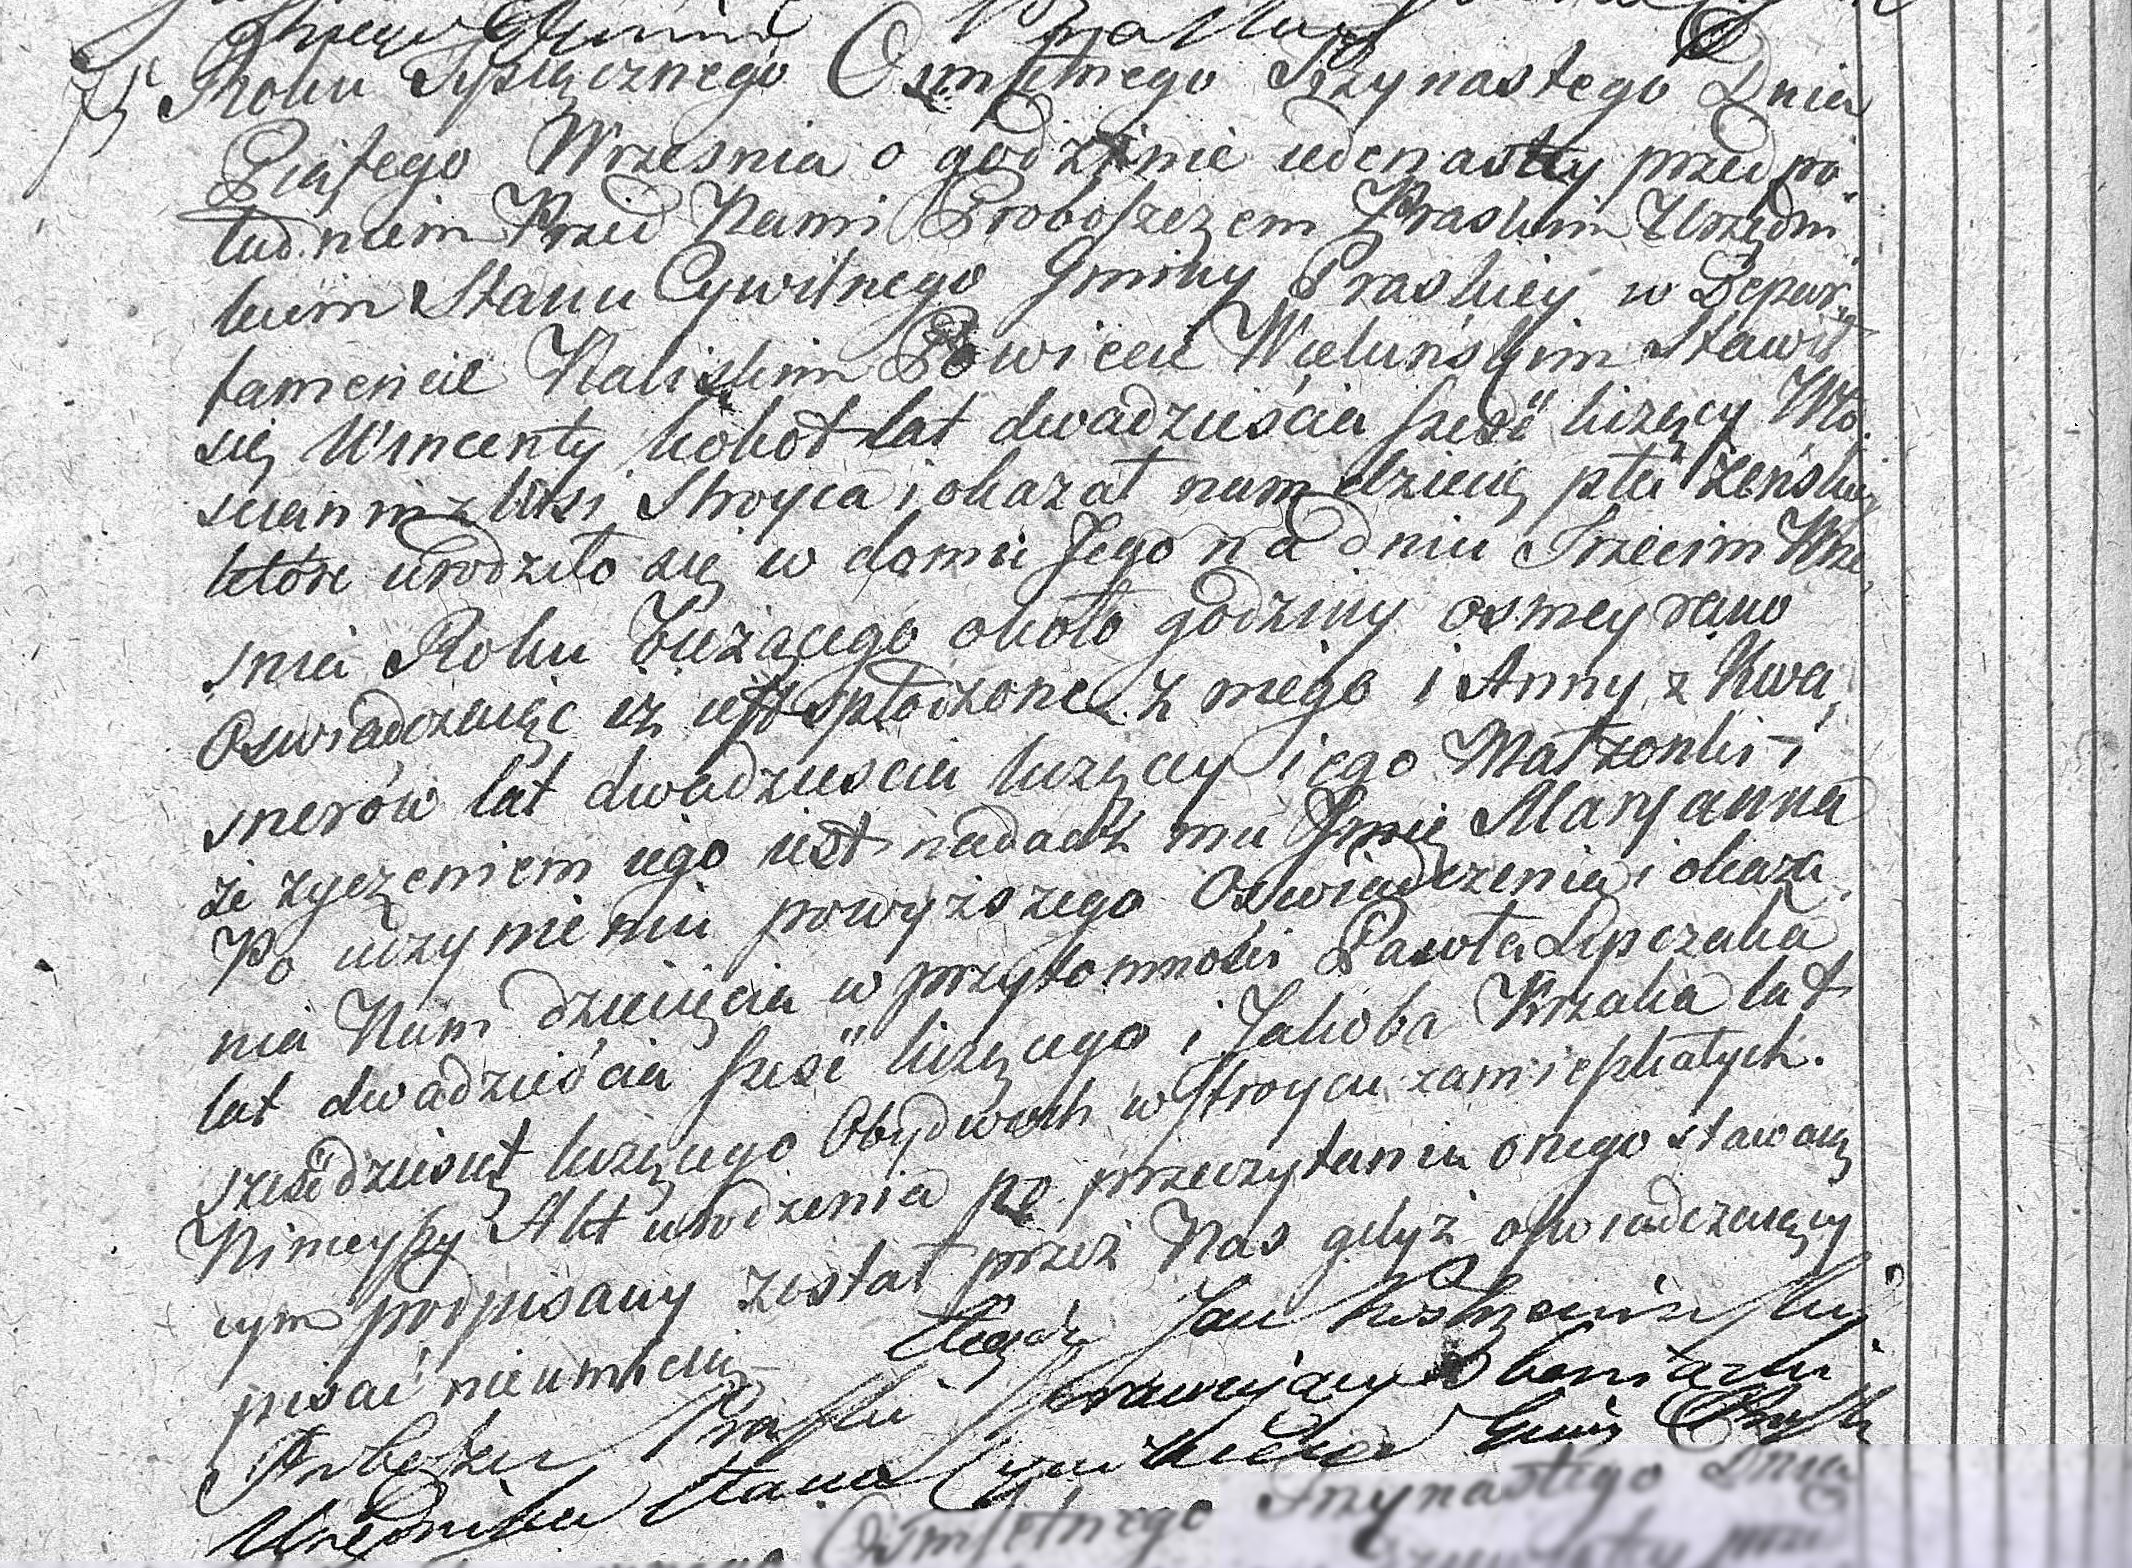 75 Roku Tysiącznego Osmsetnego Trzynastego Dnia
Piątego Wrzesnia o godzinie iedenastey przed po-
łudniem Przed Nami Proboszczem Praskim Urzędni
kiem Stanu Cywilnego Gminy Praskiey w Depar-
tamencie Kaliskim Powiecie Wieluńskim Stawił
się Wincenty kokot lat dwadzieścia sześć liczący Wło-
scianin z Wsi Stroyca i okazał nam dziecię płci żeńskiey
które urodziło się w domu Jego na dniu Trzecim Wrze-
snia Roku bieżącego około godziny osmey rano
Oswiadczaiąc iż iest spłodzone z niego i Anny z Kwa-
snerów lat dwadziescia liczącey iego Małżonki i
że życzeniem iego iest nadadź mu Jmię Maryanna
Po uczynieniu powyższego Oswiadczenia i okaza-
nia Nam dziecięcia w przytomności Pawła Lipczaka
lat dwadzieścia sześć liczącego i Jakoba Krzaka lat
sześćdziesiąt liczącego Obydwóch w Stroycu zamieszkałych.
Ninieyszy Akt urodzenia po przeczytaniu onego stawaią
cym podpisany został przez Nas gdyż oswiadczaiący
pisać nieumieią
Xiądz Jan
Proboszcz Praski Sprawuiący Obowiązki
Urzędnika Stanu Cywilnego Gminy Praski
Osmsetnego Trzynastego Dnia